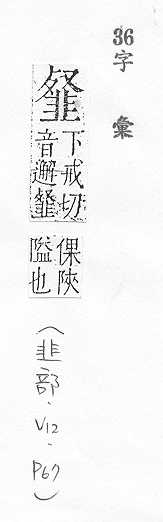 36字 彙
韰
下戒切
音邂韰
倮陜
隘也
(韭部.V12.P67)